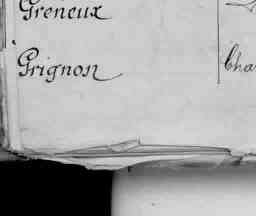 Greneux
Grignon Cha